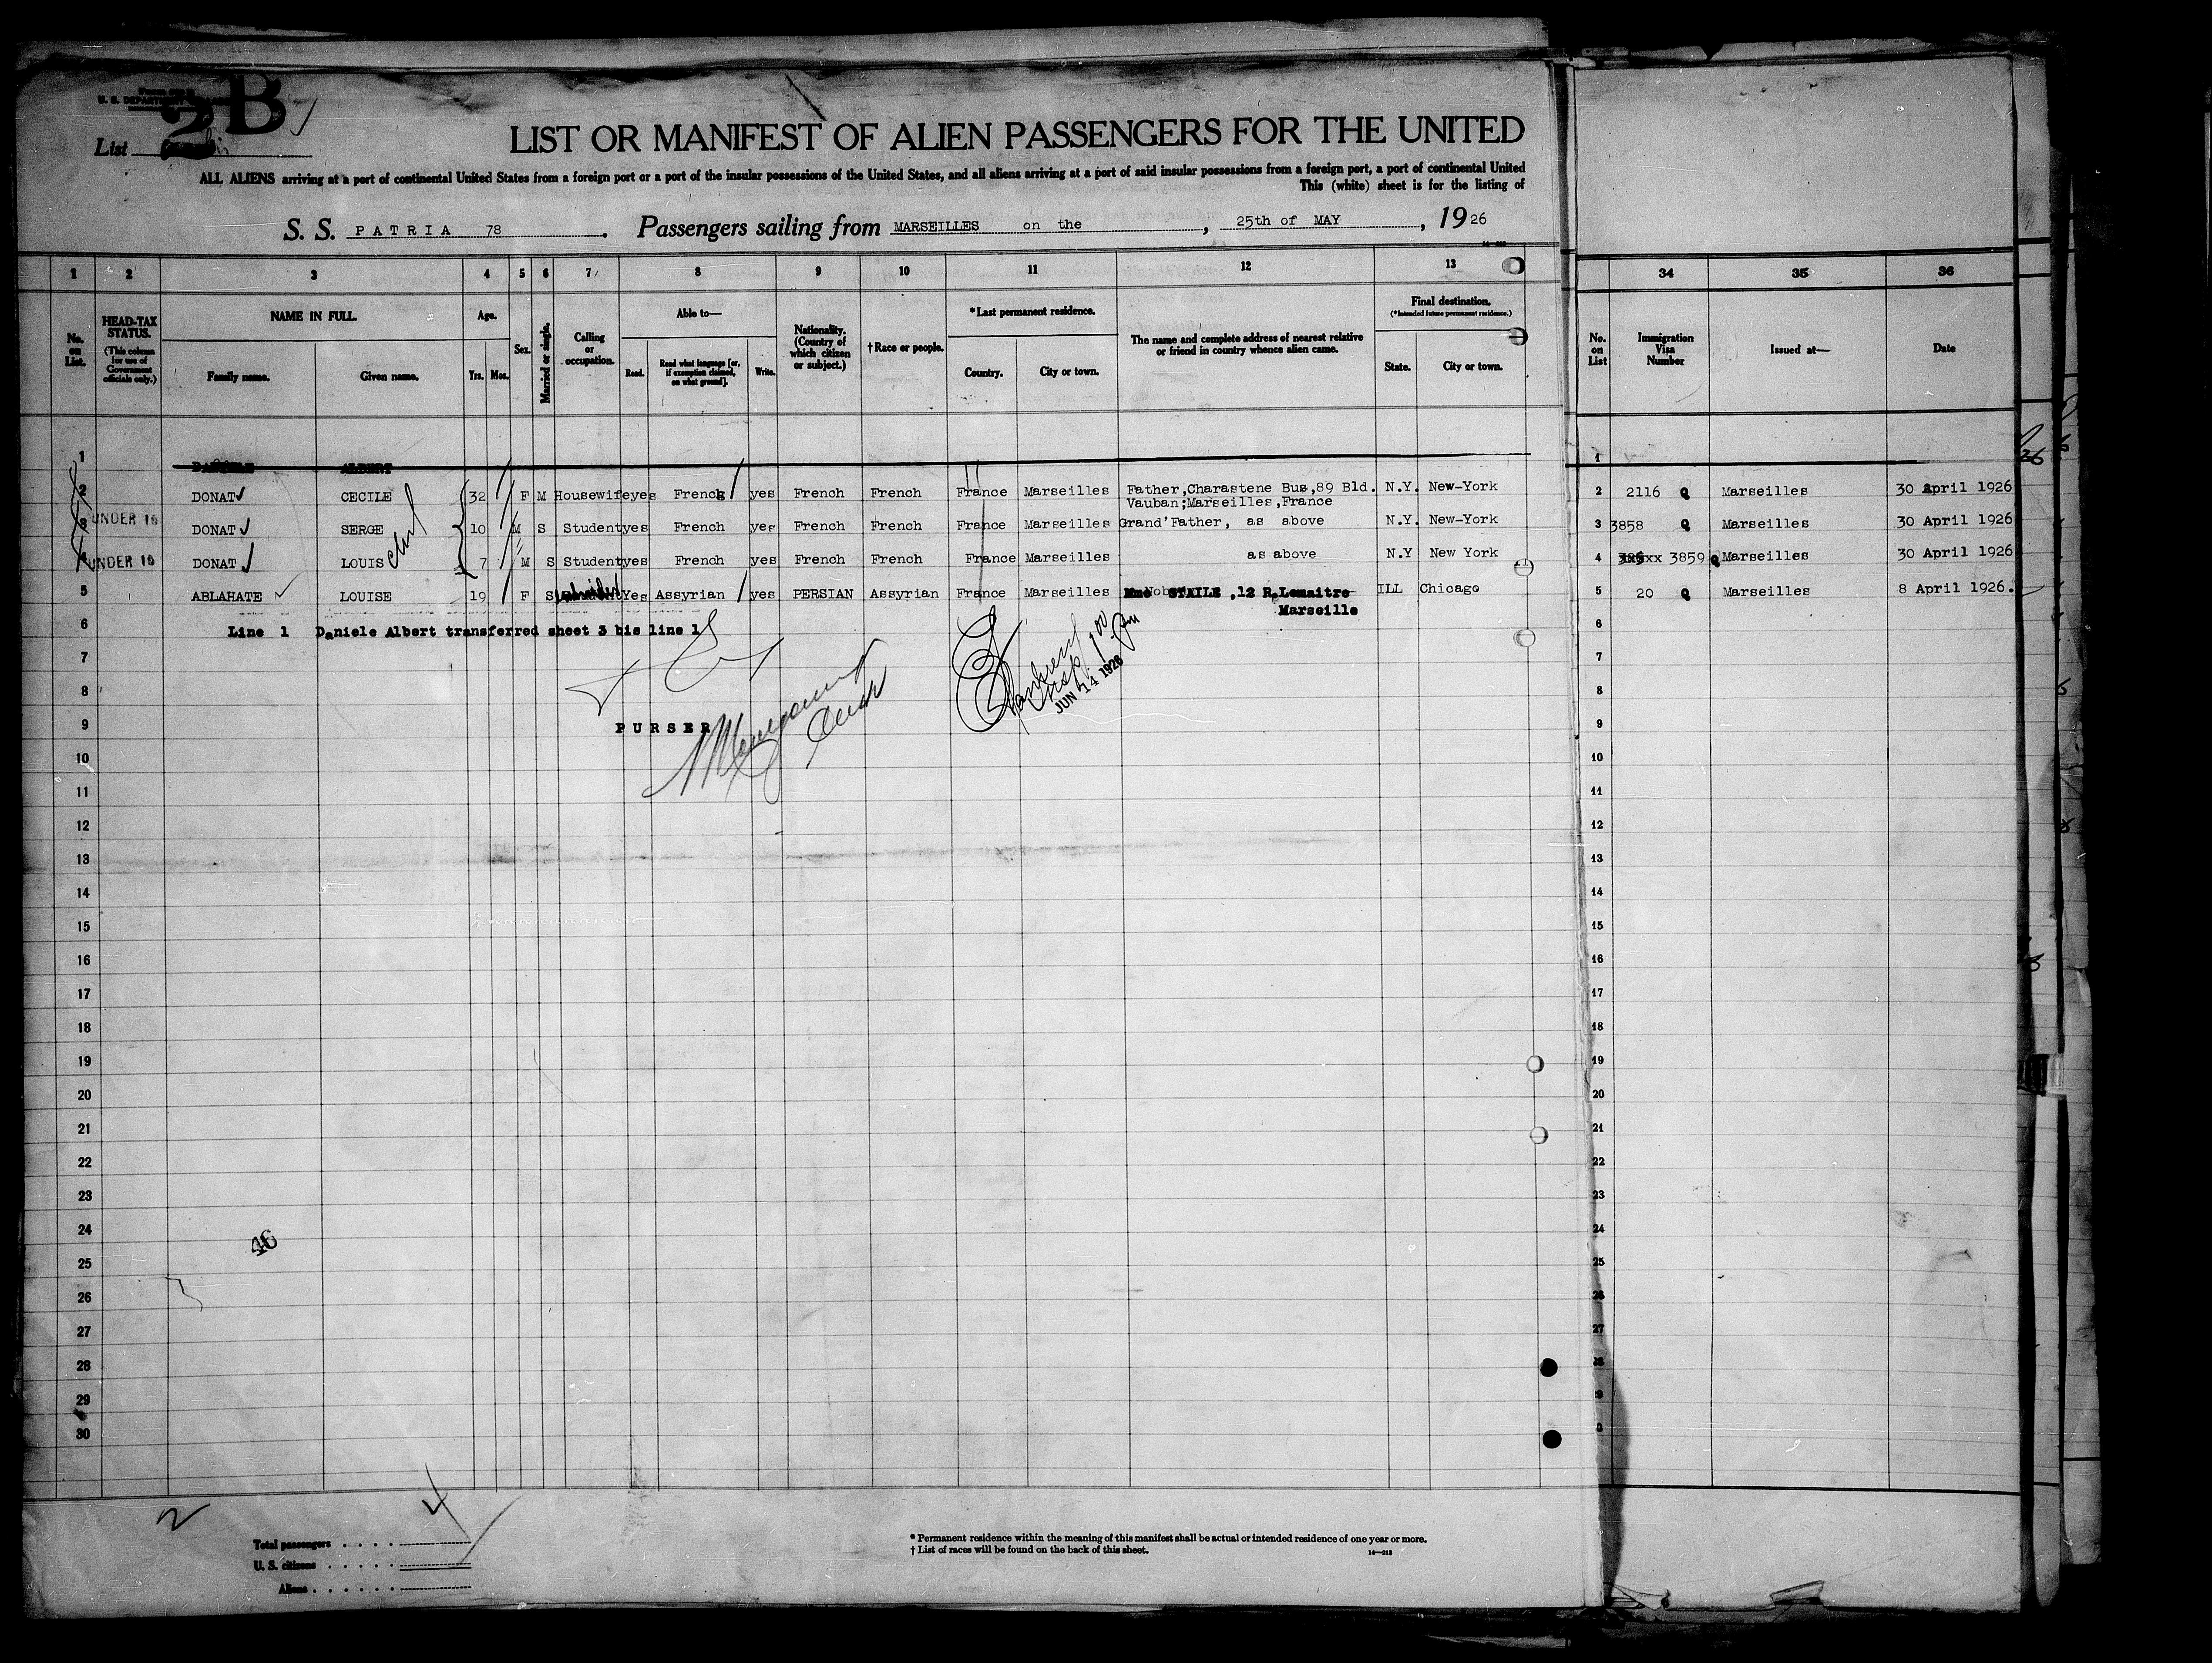 2B
List
LIST OR MANIFEST OF ALIEN PASSENGERS FOR THE UNITED
ALL ALIENS arriving at a port of continental United States from a foreign port or a port of the insular possessions of the United States, and all aliens arriving at a port of said insular possessions from a foreign port, a port of continental United
This (white) sheet is for the listing of
S. S. PATRIA 78 . Passengers sailing from MARSEILLES on the , 25th of MAY , 1926
1 2 3 4 5 6 7 8 9 10 11 12 13 34 35 36
No. on List. HEAD-TAX STATUS. (This column for use of Government officials only.) NAME IN FULL. Family name. Given name. Age. Yrs. Mos. Sex. Married or single. Calling or occupation. Able to— Read. Read what language [or, if exemption claimed, on what ground]. Write. Nationality. (Country of which citizen or subject.) †Race or people. *Last permanent residence. Country. City or town. The name and complete address of nearest relative or friend in country whence alien came. Final destination. (*Intended future permanent residence.) State. City or town. No. on List Immigration Visa Number Issued at— Date
1 DANIELE ALBERT 1
2 DONAT CECILE 32 F M Housewife yes French yes French French France Marseilles Father,Charastene Bus,89 Bld. N.Y. New-York 2 2116 Q Marseilles 30 April 1926
Vauban;Marseilles,France
3 UNDER 16 DONAT SERGE 10 M S Student yes French yes French French France Marseilles Grand'Father, as above N.Y. New-York 3 3858 Q Marseilles 30 April 1926
4 UNDER 16 DONAT LOUIS 7 M S Student yes French yes French French France Marseilles as above N.Y New York 4 3859 Q Marseilles 30 April 1926
5 ABLAHATE LOUISE 19 F S Yes Assyrian yes PERSIAN Assyrian France Marseilles STAILE ,12 R.Lemaitre ILL Chicago 5 20 Q Marseilles 8 April 1926.
Marseille
6 Line 1 Daniele Albert transferred sheet 3 bis line 1 6
7 7
8 JUN 14 1926 8
9 PURSER 9
10 10
11 11
12 12
13 13
14 14
15 15
16 16
17 17
18 18
19 19
20 20
21 21
22 22
23 23
24 46 24
25 25
26 26
27 27
28 28
29
30
2 4
Total passengers
U. S. citizens
Aliens
* Permanent residence within the meaning of this manifest shall be actual or intended residence of one year or more.
† List of races will be found on the back of this sheet.